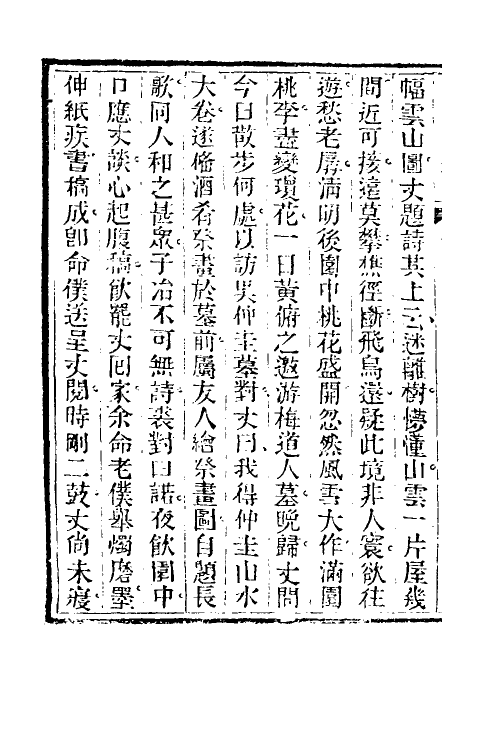 幅雲山圖丈題詩其上云迷離樹懜懂山雲一片屋幾
間近可接遠莫攀樵徑斷飛鳥還疑此境非人寰欲往
遊愁老孱清明後園中桃花盛開忽然風雪大作滿園
桃李盡變瓊花一日黃俯之邀游梅道人墓晚歸丈問
今日散步何處以訪吳仲圭墓對丈曰我得仲圭山水
大卷遂偹酒肴祭畫於墓前屬友人繪祭畫圖自題長
歌同人和之甚眾子冶不可無詩裘對曰諾夜飲園中
口應丈談心起腹稿飲罷丈回家余命老僕舉燭磨墨
伸紙疾書稿成卽命僕送呈丈閱時剛二鼓丈尙未寢